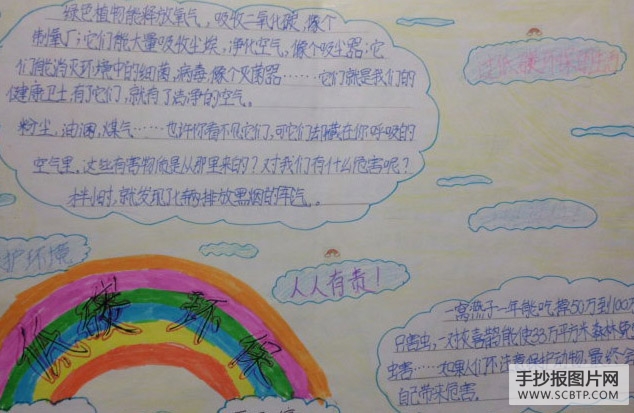 绿色植物能释放氧气，吸收二氧化碳，像个
制氧厂；它们能大量吸收尘埃，净化空气，像个吸尘器；它
们能消灭环境中的细菌，病毒，像个灭菌器……它们就是我们的
健康卫士，有了它们，就有了洁净的空气。
粉尘，油烟，煤气……也许你看不见它们，可它们却藏在你呼吸的
空气里。这些有害物质是从那里来的？对我们有什么危害呢？
半小时，就发现了辆排放黑烟的汽。
护环境
人人有责！
低碳环保
一窝燕子一年能吃掉50万到100万
只害虫，一对
能使33万平方米森林免
虫害……如果人们不注意保护动物，最终会
自己带来危害。
手抄报图片网
WWW.SCBTP.COM